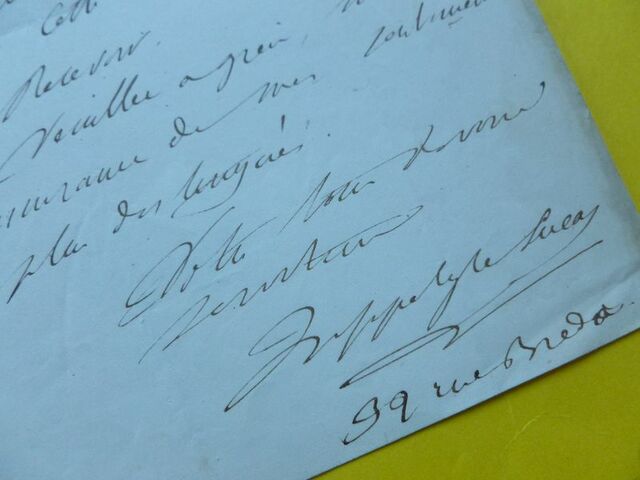 Cette
Recevoir.
Veuillez agréer,
assurance de mes sentiments
plus distingués.
Votre tout dévoué
serviteur
Hippolyte Lucas
39 rue Breda